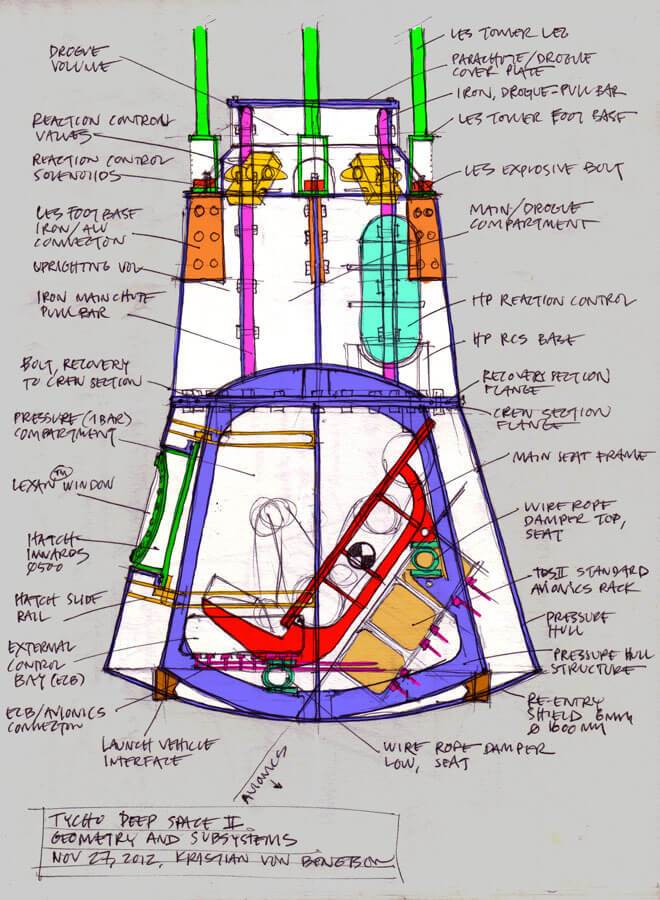 DROGUE
VOLUME
REACTION CONTROL
VALVES
REACTION CONTROL
SOLENOIDS
LES FOOT BASE
IRON/ALU
CONNECTION
UPRIGHTING VOL
IRON MAIN CHUTE
PULL BAR
BOLT, RECOVERY
TO CREW SECTION
PRESSURE (1 BAR)
COMPARTMENT
LEXAN TM WINDOW
HATCH-
INWARDS
Ø500
HATCH SLIDE
RAIL
EXTERNAL
CONTROL
BAY (ECB)
ECB/AVIONICS
CONNECTION
LAUNCH VEHICLE
INTERFACE
AVIONICS
LES TOWER LEG
PARACHUTE/DROGUE
COVER PLATE
IRON, DROGUE-PULL BAR
LES TOWER FOOT BASE
LES EXPLOSIVE BOLT
MAIN/DROGUE
COMPARTMENT
HP REACTION CONTROL
HP RCS BASE
RECOVERY SECTION
FLANGE
CREW SECTION
FLANGE
MAIN SEAT FRAME
WIRE ROPE
DAMPER TOP,
SEAT
TDSII STANDARD
AVIONICS RACK
PRESSURE
HULL
PRESSURE HULL
STRUCTURE
RE-ENTRY
SHIELD 6MM
Ø 1600 MM
WIRE ROPE DAMPER
LOW, SEAT
TYCHO DEEP SPACE II
GEOMETRY AND SUBSYSTEMS
NOV 27, 2012, KRISTIAN VON BENGTSON